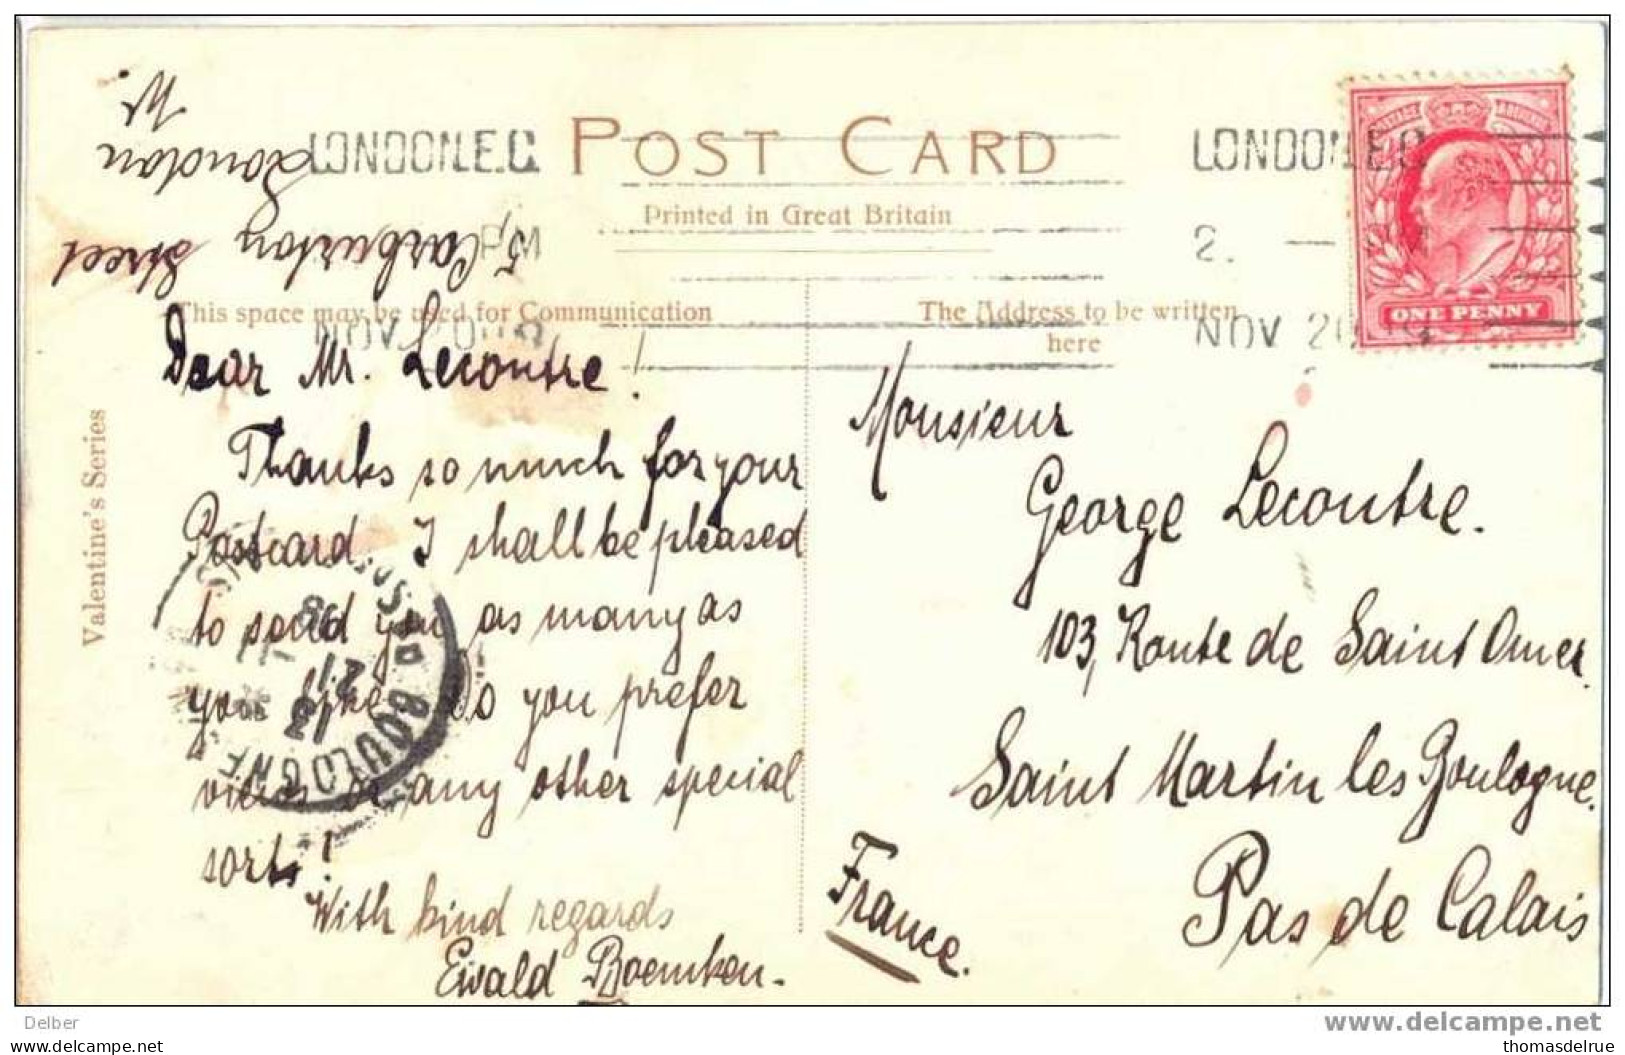 POST CARD
Printed in Great Britain
This space may be used for Communication
The Address to be written
here
Valentine's Series
ONE PENNY
LONDON.E.C.
PM
NOV 20
LONDON.E.C
2.
NOV 20
5, Carburton Street
London
W.
Dear Mr. Lecoutre!
Thanks so much for your
Postcard. I shall be pleased
to send you as many as
you like. Do you prefer
views or any other special
sorts!
With kind regards
Ewald Boemken.
Monsieur
George Lecoutre.
103, Route de Saint Omer
Saint Martin les Boulogne.
Pas de Calais
France.
BOULOGNE
13
21
Delber
www.delcampe.com
www.delcampe.net
thomasdelrue